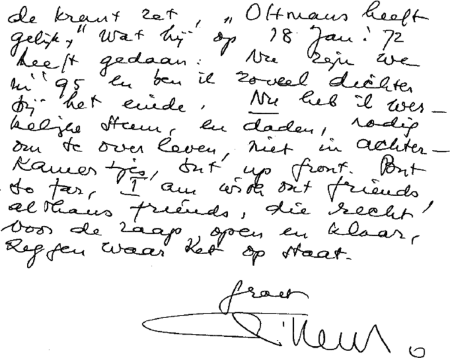 de krant zet, „Oltmans heeft
gelijk," wat hij op 28 Jan! 72
heeft gedaan. Nu zijn we
in '95 en ben ik zoveel dichter
bij het einde. Nu heb ik wer-
kelijke steun, en daden, nodig
om te overleven, niet in achter-
kamertjes, but up front. But
so far, I am with out friends
althans friends, die recht
voor de raap, open en klaar,
zeggen waar het op staat.
groet
Willem O